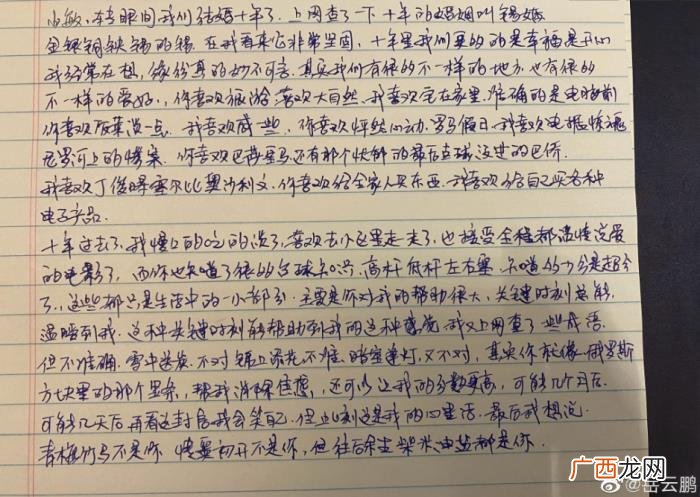 小敏，本言眼间我们结婚十年了，上网查了一下十年的婚姻叫锡婚
金银铜铁锡的锡，在我看来它非常坚固，十年里我们更的的是幸福是开心
我经常在想，缘份真的妙不可言，其实我们有很的不一样的地方，也有很的
不一样的爱好，你喜欢旅游喜欢大自然，我喜欢宅在家里，准确的是电脑前
你喜欢饭菜淡一点，我喜欢咸一些，你喜欢怦然心动、罗马假日，我喜欢电锯惊魂
尼罗河上的惨案，你喜欢巴萨皇马还有那个快船的最后直球没进的巴乔
我喜欢丁俊晖塞尔比奥沙利文，你喜欢给全家人买东西，我喜欢给自己买各种
电子产品
十年过去了，我慢口的吃的淡了，喜欢去小区里走一走了，也接受全程都谈情说爱
的电影了，而你也知道了很的台球知识，高杆低杆左右塞，知道的分是超分
了，这些都只是生活中的一小部分，主要是你对我的帮助很大，关键时刻总能
温暖到我，这种关键时刻能帮助到我的这种感觉，我又上网查了一些成语
但不准确，雪中送炭，不对，锦上添花，不准，暗室逢灯，又不对，其实你就像俄罗斯
方块里的那个竖条，帮我消除焦虑，还可以让我的分数更高，可能几个月后
可能几天后再看这封信我会笑自己，但此刻这是我的心里话，最后我想说
青梅竹马不是你，情窦初开不是你，但往后余生柴米油盐都是你
广西龙网
@岳云鹏